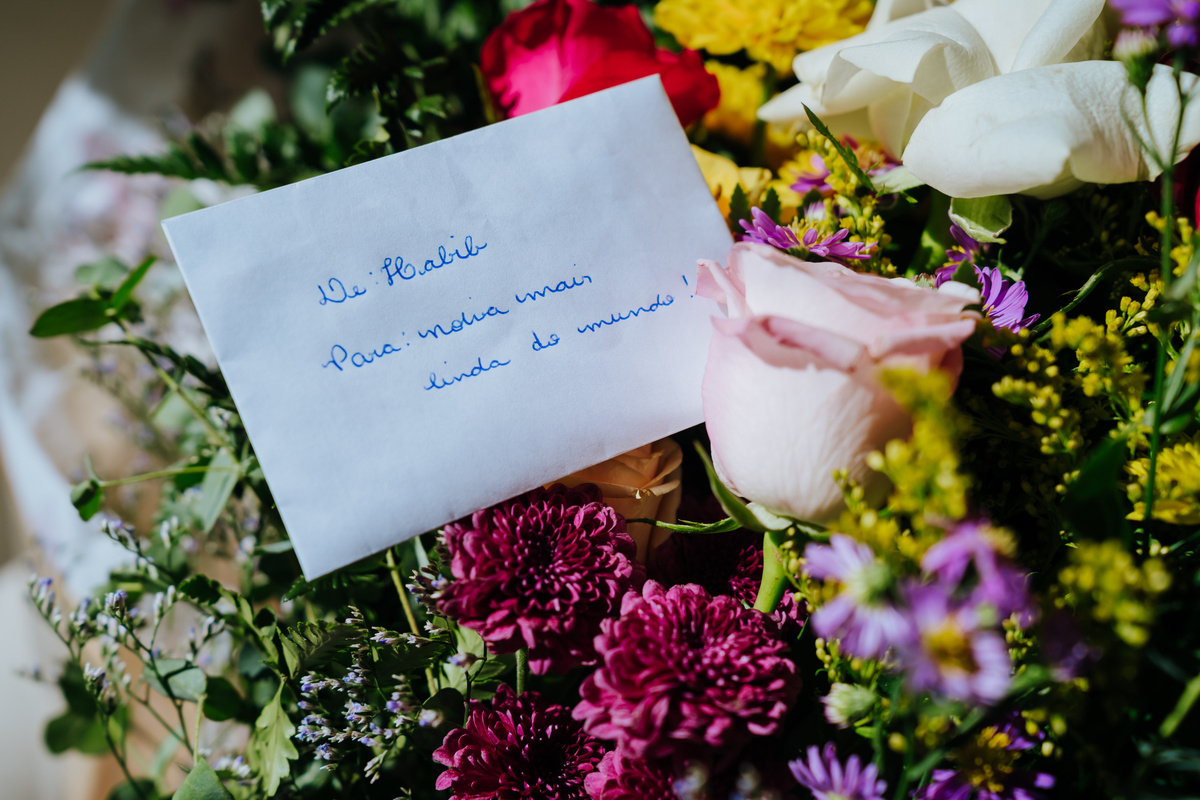 De: Habib
Para: noiva mais
linda do mundo!